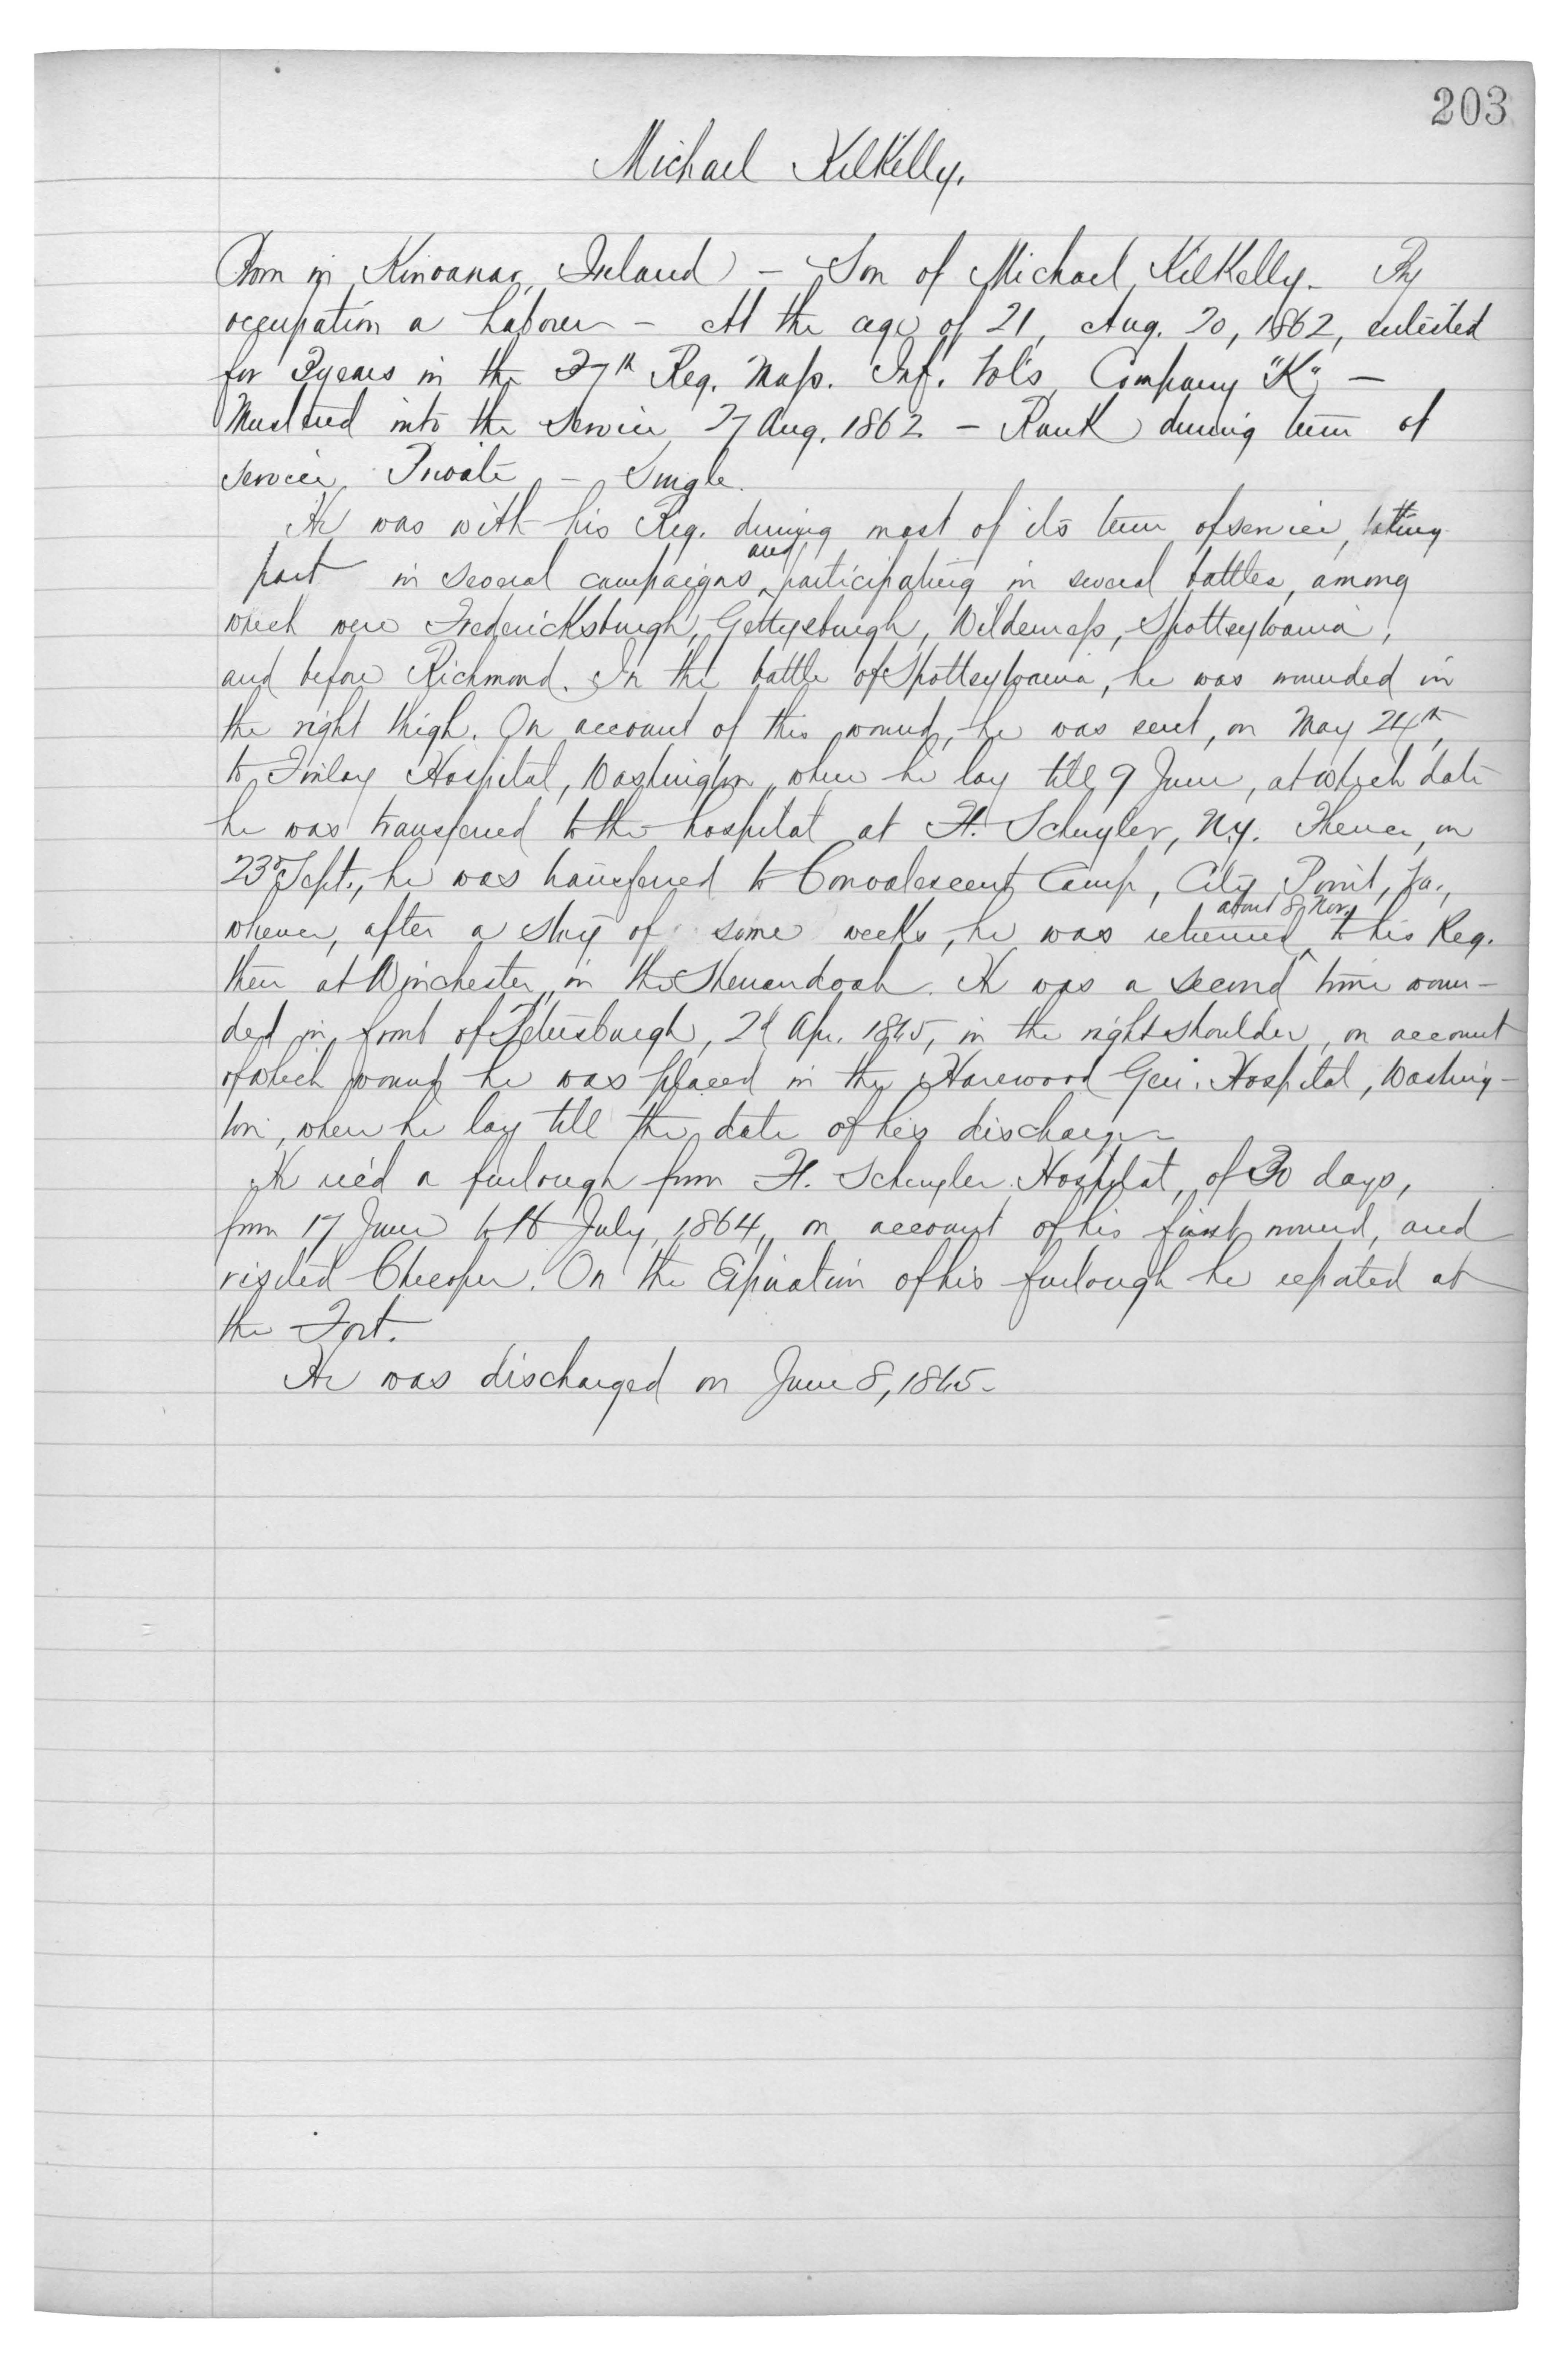 203
Michael KilKelly.
Born in Kinvanar, Ireland – Son of Michael KilKelly. By
occupation a laborer – At the age of 21, Aug. 20, 1862, enlisted
for 3 years in the 37th Reg. Mass. Inf. Vol's, Company "K" –
Mustered into the service, 27 Aug. 1862 – Rank during term of
service, Private – Single.
He was with his Reg. during most of its term of service, taking
part in several campaigns and participating in several battles, among
which were Fredericksburgh, Gettysburgh, Wilderness, Spottsylvania,
and before Richmond. In the battle of Spottsylvania, he was wounded in
the right thigh. On account of this wound, he was sent, on May 24th,
to Finlay Hospital, Washington, where he lay till 9 June, at which date
he was transferred to the hospital at Ft. Schuyler, N.Y. Thence, on
23d Sept., he was transferred to Convalescent Camp, City Point, Va.,
whence, after a stay of some weeks, he was returned about 8 Nov. to his Reg.
then at Winchester, in the Shenandoah. He was a second time woun-
ded in front of Petersburgh, 2d Apr. 1865, in the right shoulder, on account
of which wound he was placed in the Harewood Gen. Hospital, Washing-
ton, where he lay till the date of his discharge –
He rec'd a furlough from Ft. Schuyler Hospital, of 30 days,
from 17 June to 18 July, 1864, on account of his first wound, and
visited Chicopee. On the Expiration of his furlough he reported at
the Fort.
He was discharged on June 8, 1865 –